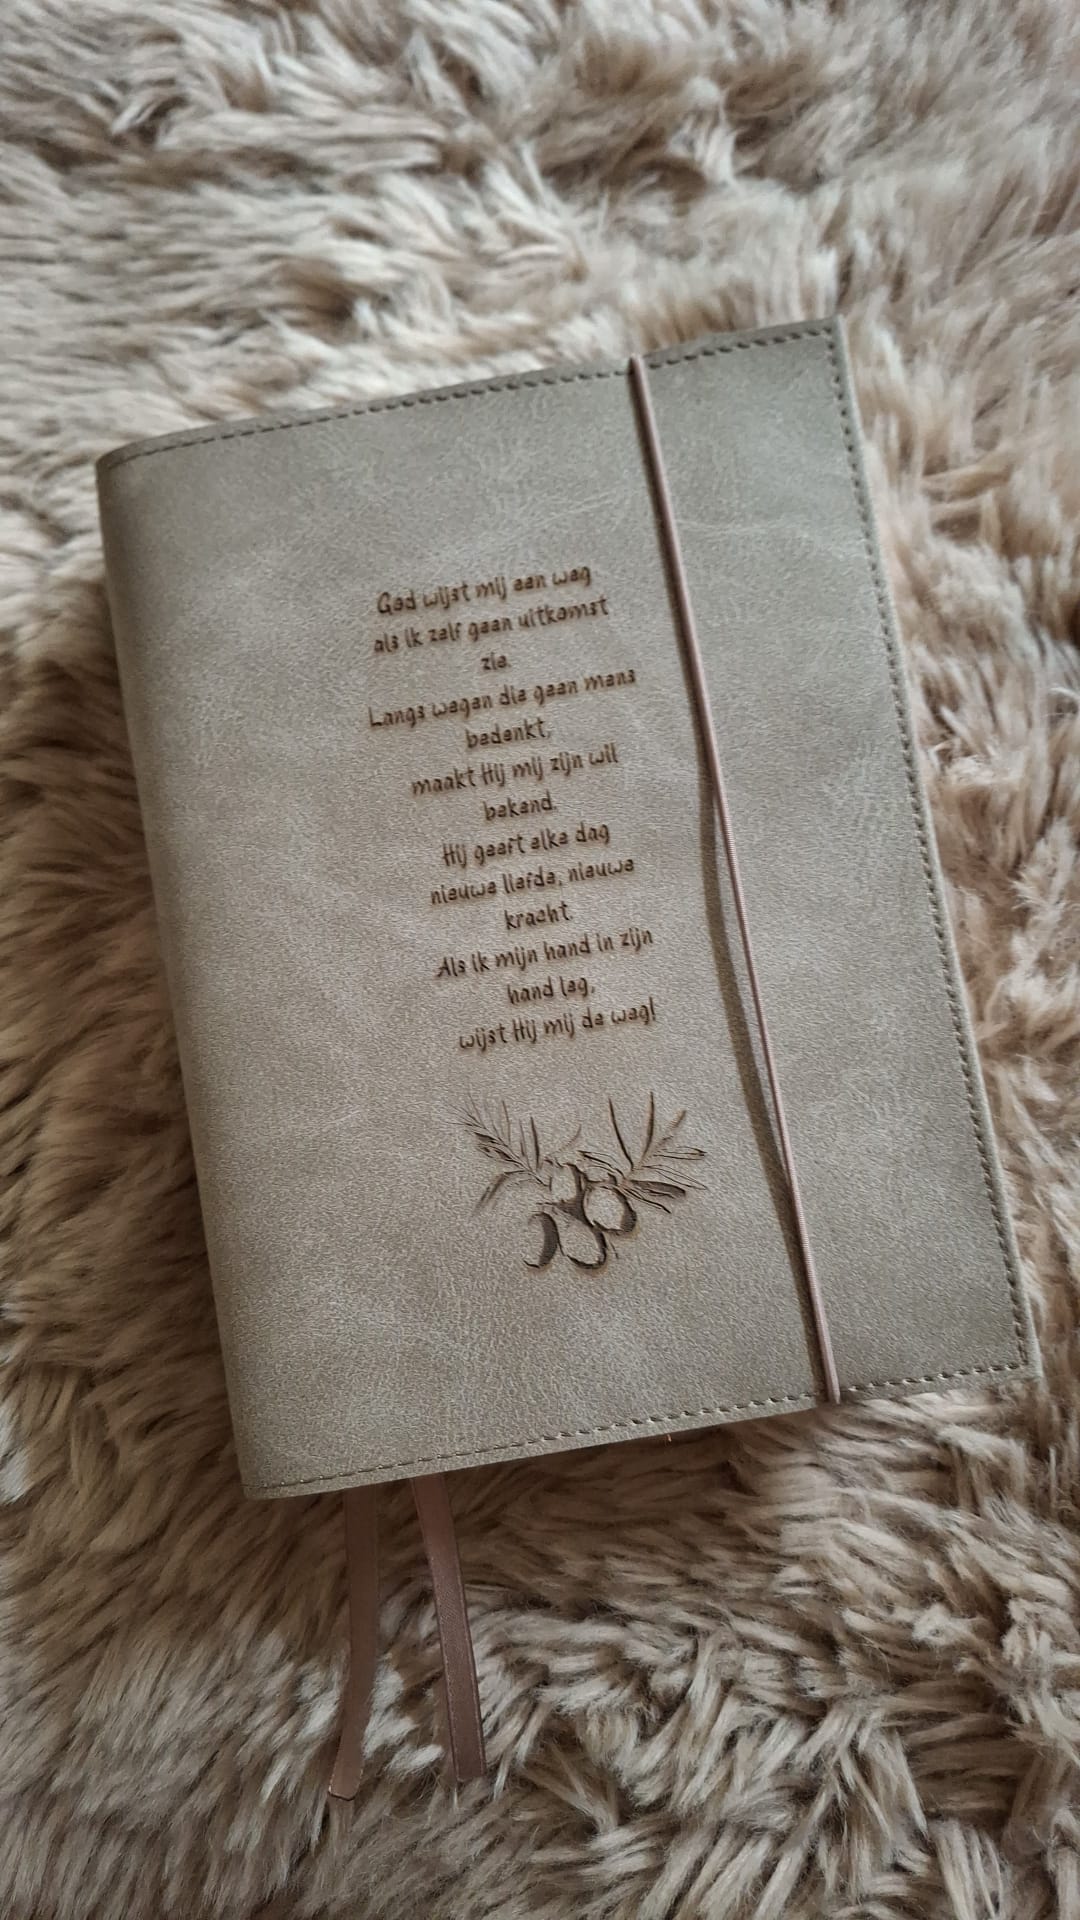 God wijst mij een weg
als ik zelf geen uitkomst
zie.
Langs wegen die geen mens
bedenkt,
maakt Hij mij zijn wil
bekend.
Hij geeft elke dag
nieuwe liefde, nieuwe
kracht.
Als ik mijn hand in zijn
hand leg,
wijst Hij mij de weg!